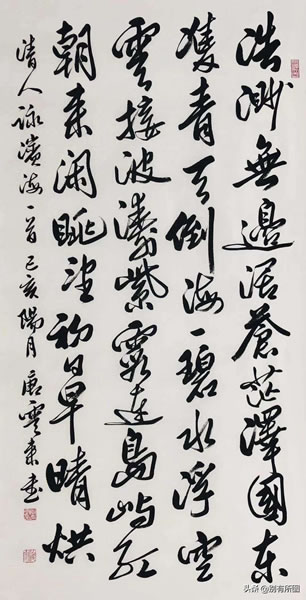 浩渺無邊蒼茫澤國東
青天倒海一碧水浮空
雲接波濤紫霞連島嶼紅
朝來閑眺望初日早晴烘
清人詠濱海一首己亥陽月唐雲來書
头条 @别有所图